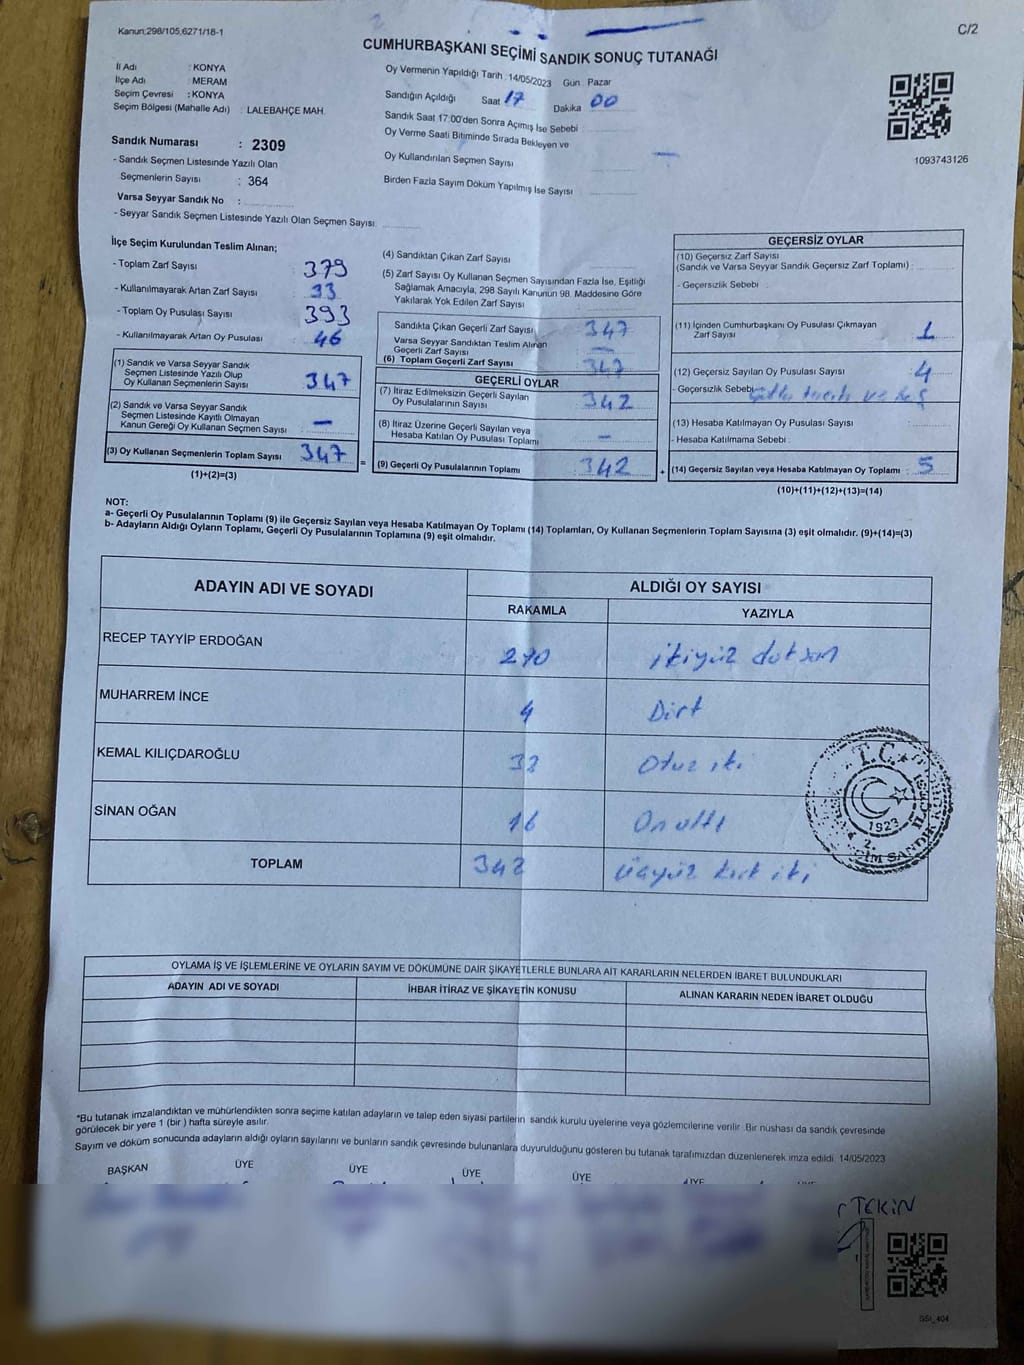 Kanun:298/105,6271/18-1
C/2
CUMHURBAŞKANI SEÇİMİ SANDIK SONUÇ TUTANAĞI
İl Adı : KONYA
İlçe Adı : MERAM
Seçim Çevresi : KONYA
Seçim Bölgesi (Mahalle Adı) : LALEBAHÇE MAH.
Oy Vermenin Yapıldığı Tarih : 14/05/2023 Gün : Pazar
Sandığın Açıldığı Saat 17 Dakika 00
Sandık Saat 17:00'den Sonra Açılmış İse Sebebi
Oy Verme Saati Bitiminde Sırada Bekleyen ve
Oy Kullandırılan Seçmen Sayısı —
Birden Fazla Sayım Döküm Yapılmış İse Sayısı
1093743126
Sandık Numarası : 2309
- Sandık Seçmen Listesinde Yazılı Olan
Seçmenlerin Sayısı : 364
Varsa Seyyar Sandık No :
- Seyyar Sandık Seçmen Listesinde Yazılı Olan Seçmen Sayısı:
İlçe Seçim Kurulundan Teslim Alınan;
- Toplam Zarf Sayısı : 379
- Kullanılmayarak Artan Zarf Sayısı : 33
- Toplam Oy Pusulası Sayısı : 393
- Kullanılmayarak Artan Oy Pusulası : 46
(1) Sandık ve Varsa Seyyar Sandık
Seçmen Listesinde Yazılı Olup
Oy Kullanan Seçmenlerin Sayısı : 347
(2) Sandık ve Varsa Seyyar Sandık
Seçmen Listesinde Kayıtlı Olmayan
Kanun Gereği Oy Kullanan Seçmen Sayısı : —
(3) Oy Kullanan Seçmenlerin Toplam Sayısı : 347
(1)+(2)=(3)
(4) Sandıktan Çıkan Zarf Sayısı
(5) Zarf Sayısı Oy Kullanan Seçmen Sayısından Fazla İse, Eşitliği
Sağlamak Amacıyla, 298 Sayılı Kanunun 98. Maddesine Göre
Yakılarak Yok Edilen Zarf Sayısı
Sandıkta Çıkan Geçerli Zarf Sayısı : 347
Varsa Seyyar Sandıktan Teslim Alınan
Geçerli Zarf Sayısı : —
(6) Toplam Geçerli Zarf Sayısı : 347
GEÇERLİ OYLAR
(7) İtiraz Edilmeksizin Geçerli Sayılan
Oy Pusulalarının Sayısı : 342
(8) İtiraz Üzerine Geçerli Sayılan veya
Hesaba Katılan Oy Pusulası Toplamı : —
(9) Geçerli Oy Pusulalarının Toplamı : 342
GEÇERSİZ OYLAR
(10) Geçersiz Zarf Sayısı
(Sandık ve Varsa Seyyar Sandık Geçersiz Zarf Toplamı) :
- Geçersizlik Sebebi :
(11) İçinden Cumhurbaşkanı Oy Pusulası Çıkmayan
Zarf Sayısı : 1
(12) Geçersiz Sayılan Oy Pusulası Sayısı : 4
- Geçersizlik Sebebi :
(13) Hesaba Katılmayan Oy Pusulası Sayısı :
- Hesaba Katılmama Sebebi :
(14) Geçersiz Sayılan veya Hesaba Katılmayan Oy Toplamı : 5
(10)+(11)+(12)+(13)=(14)
NOT:
a- Geçerli Oy Pusulalarının Toplamı (9) ile Geçersiz Sayılan veya Hesaba Katılmayan Oy Toplamı (14) Toplamları, Oy Kullanan Seçmenlerin Toplam Sayısına (3) eşit olmalıdır. (9)+(14)=(3)
b- Adayların Aldığı Oyların Toplamı, Geçerli Oy Pusulalarının Toplamına (9) eşit olmalıdır.
ADAYIN ADI VE SOYADI ALDIĞI OY SAYISI
RAKAMLA YAZIYLA
RECEP TAYYİP ERDOĞAN 290 ikiyüz doksan
MUHARREM İNCE 4 Dört
KEMAL KILIÇDAROĞLU 32 Otuz iki
SİNAN OĞAN 16 On altı
TOPLAM 342 üçyüz kırk iki
T.C.
1923
OYLAMA İŞ VE İŞLEMLERİNE VE OYLARIN SAYIM VE DÖKÜMÜNE DAİR ŞİKAYETLERLE BUNLARA AİT KARARLARIN NELERDEN İBARET BULUNDUKLARI
ADAYIN ADI VE SOYADI İHBAR İTİRAZ VE ŞİKAYETİN KONUSU ALINAN KARARIN NEDEN İBARET OLDUĞU
*Bu tutanak imzalandıktan ve mühürlendikten sonra seçime katılan adayların ve talep eden siyasi partilerin sandık kurulu üyelerine veya gözlemcilerine verilir. Bir nüshası da sandık çevresinde
görülecek bir yere 1 (bir) hafta süreyle asılır.
Sayım ve döküm sonucunda adayların aldığı oyların sayılarını ve bunların sandık çevresinde bulunanlara duyurulduğunu gösteren bu tutanak tarafımızdan düzenlenerek imza edildi. 14/05/2023
BAŞKAN ÜYE ÜYE ÜYE ÜYE ÜYE
TEKİN
GSI_404